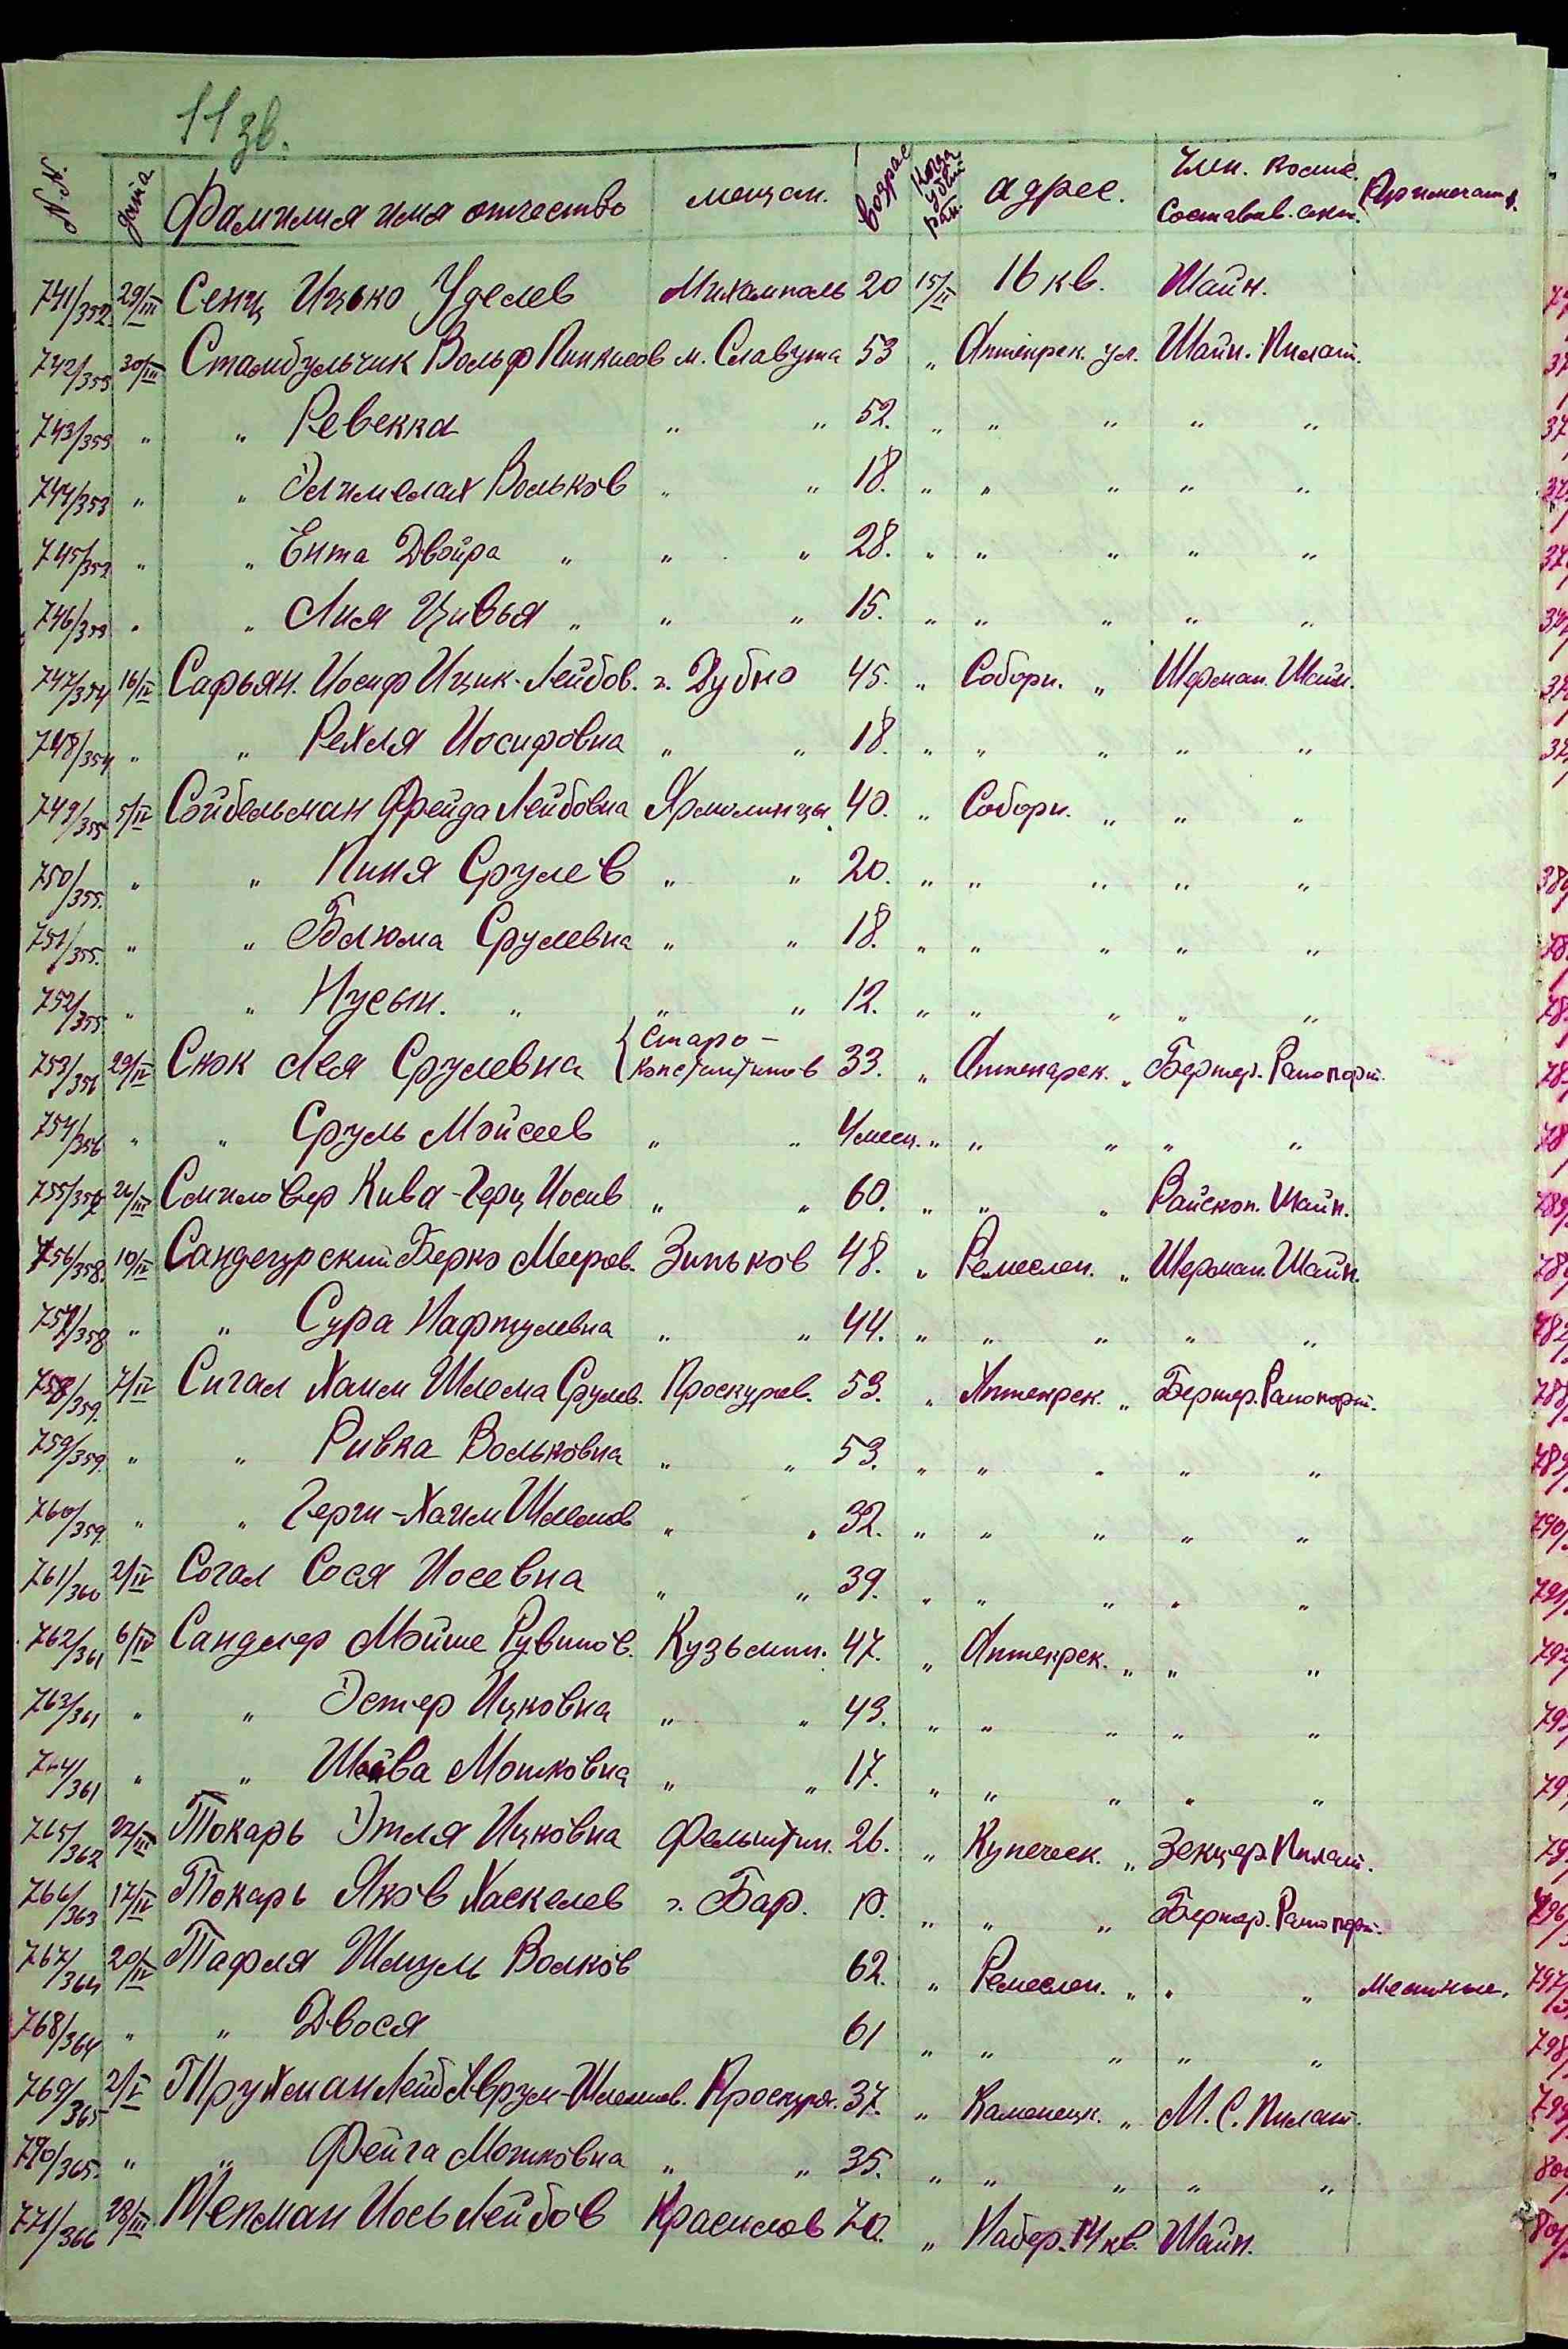 11 зв.
№№ дата Фамилия имя отчество мещан. возрас Когда убит ран. адрес. Член. комис. Составив. акт. Примечан.
741/352 29/III Сенц Ицько Уделев Михамполь 20 15/II 16 кв. Шайн.
742/353 30/III Стамбульчик Вольф Пинкасов м. Славута 53 „ Аптекрск. ул. Шайн. Пилат.
743/353 „ „ Ревекка „ „ 52. „ „ „ „ „
744/353 „ „ Элимелах Вольков „ „ 18. „ „ „ „ „
745/353 „ „ Ента Двойра „ „ „ 28. „ „ „ „ „
746/353 „ „ Лия Цивья „ „ „ 15. „ „ „ „ „
747/354 16/IV Сафьян. Иосиф Ицик-Лейбов. г. Дубно 45. „ Соборн. „ Шерман. Шайн.
748/354 „ „ Рехля Иосифовна „ „ 18. „ „ „ „ „
749/355 5/IV Сойбельман Фрейда Лейбовна Ярмолинцы. 40. „ Соборн. „ „ „
750/355. „ „ Пиня Срулев „ „ 20. „ „ „ „ „
751/355. „ „ Блюма Срулевна „ „ 18. „ „ „ „ „
752/355. „ „ Нусын. „ „ „ 12. „ „ „ „ „
753/356 29/IV Снок Лея Срулевна Старо-Константинов 33. „ Аптекарск. „ Бернер. Рапопорт.
754/356 „ „ Сруль Мойсеев „ „ 4 месц. „ „ „ „ „
755/357 26/III Смиловер Кива-Герц Иосив „ „ 60. „ „ „ Вайскоп. Шайн.
756/358. 10/IV Сандецрский Берко Мееров. Зиньков 48. „ Ремеслен. „ Шерман. Шайн.
757/358 „ „ Сура Нафтулевна „ „ 44. „ „ „ „ „
758/359. 7/IV Сигал Хаим Шлема Срулев. Проскуров. 53. „ Аптекрск. „ Бернер. Рапопорт.
759/359. „ „ Ривка Вольковна „ „ 53. „ „ „ „ „
760/359. „ „ Герш-Хаим Шлемов „ „ 32. „ „ „ „ „
761/360 2/IV Согал Сося Иосевна „ „ 39. „ „ „ „ „
762/361 6/IV Сандлер Мойше Рувинов. Кузьмин. 47. „ Аптекрск. „ „ „
763/361 „ „ Эстер Ицковна „ „ 43. „ „ „ „ „
764/361 „ „ Шейва Мошковна „ „ 17. „ „ „ „ „
765/362 22/III Токарь Этля Ицковна Фельштин. 26. „ Купеческ. „ Зекцер Пилат.
766/363 17/IV Токарь Яков Хаскелев г. Бар. 19. „ „ „ Бернер. Рапопорт.
767/364 20/IV Тафля Шмуль Волков 62. „ Ремеслен. „ „ „ Местные.
768/364 „ „ Двося 61 „ „ „ „ „
769/365 2/V Трухман Лейб Аврум-Шлемов. Проскуров. 37. „ Каменецк. „ М. С. Пилат.
770/365. „ „ Фейга Мошковна „ „ 35. „ „ „ „ „
771/366 28/III Тепман Иось Лейбов Красилов 70. „ Набер. 14 кв. Шайн.